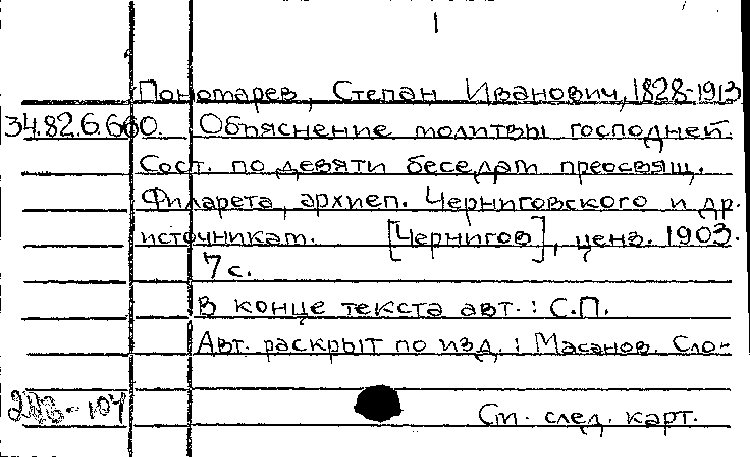 1
Пономарев, Степан Иванович, 1828-1913
34.82.6.660. Объяснение молитвы господней.
Сост. по девяти беседам преосвящ.
Филарета, архиеп. Черниговского и др.
источникам. [Чернигов], ценз. 1903.
7 с.
В конце текста авт.: С.П.
Авт. раскрыт по изд.: Масанов. Сло-
См. след. карт.